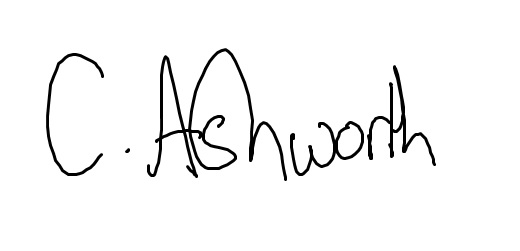 C. Ashworth